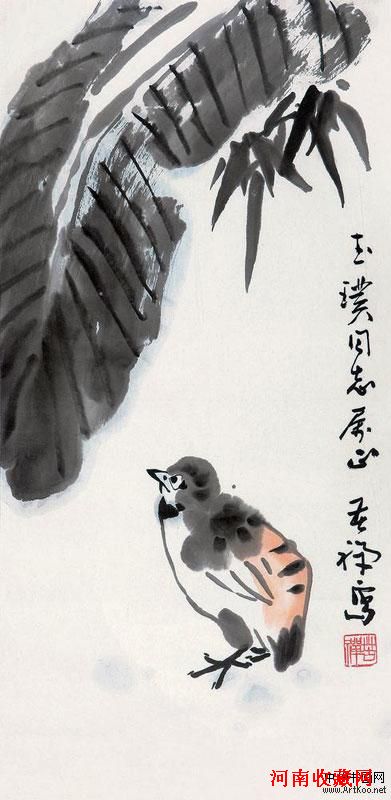 玉璞同志属正
苦禅写
苦禅
河南收藏网
www.ArtKoo.net